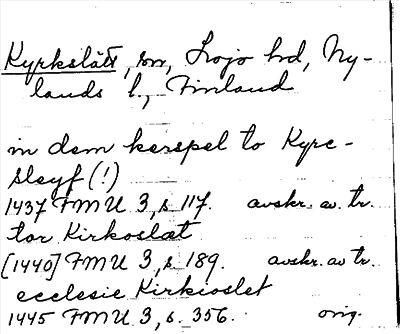 Kyrkslätt, sn, Lojo hd, Ny-
lands l., Finland
in dem kerspel to Kyrc-
sleyf (!)
1437 FMU 3, s. 117. avskr. av tr.
tor Kirkoslat
[1440] FMU 3, s. 189. avskr. av tr.
ecclesie Kirkioslet
1445 FMU 3, s. 356. orig.